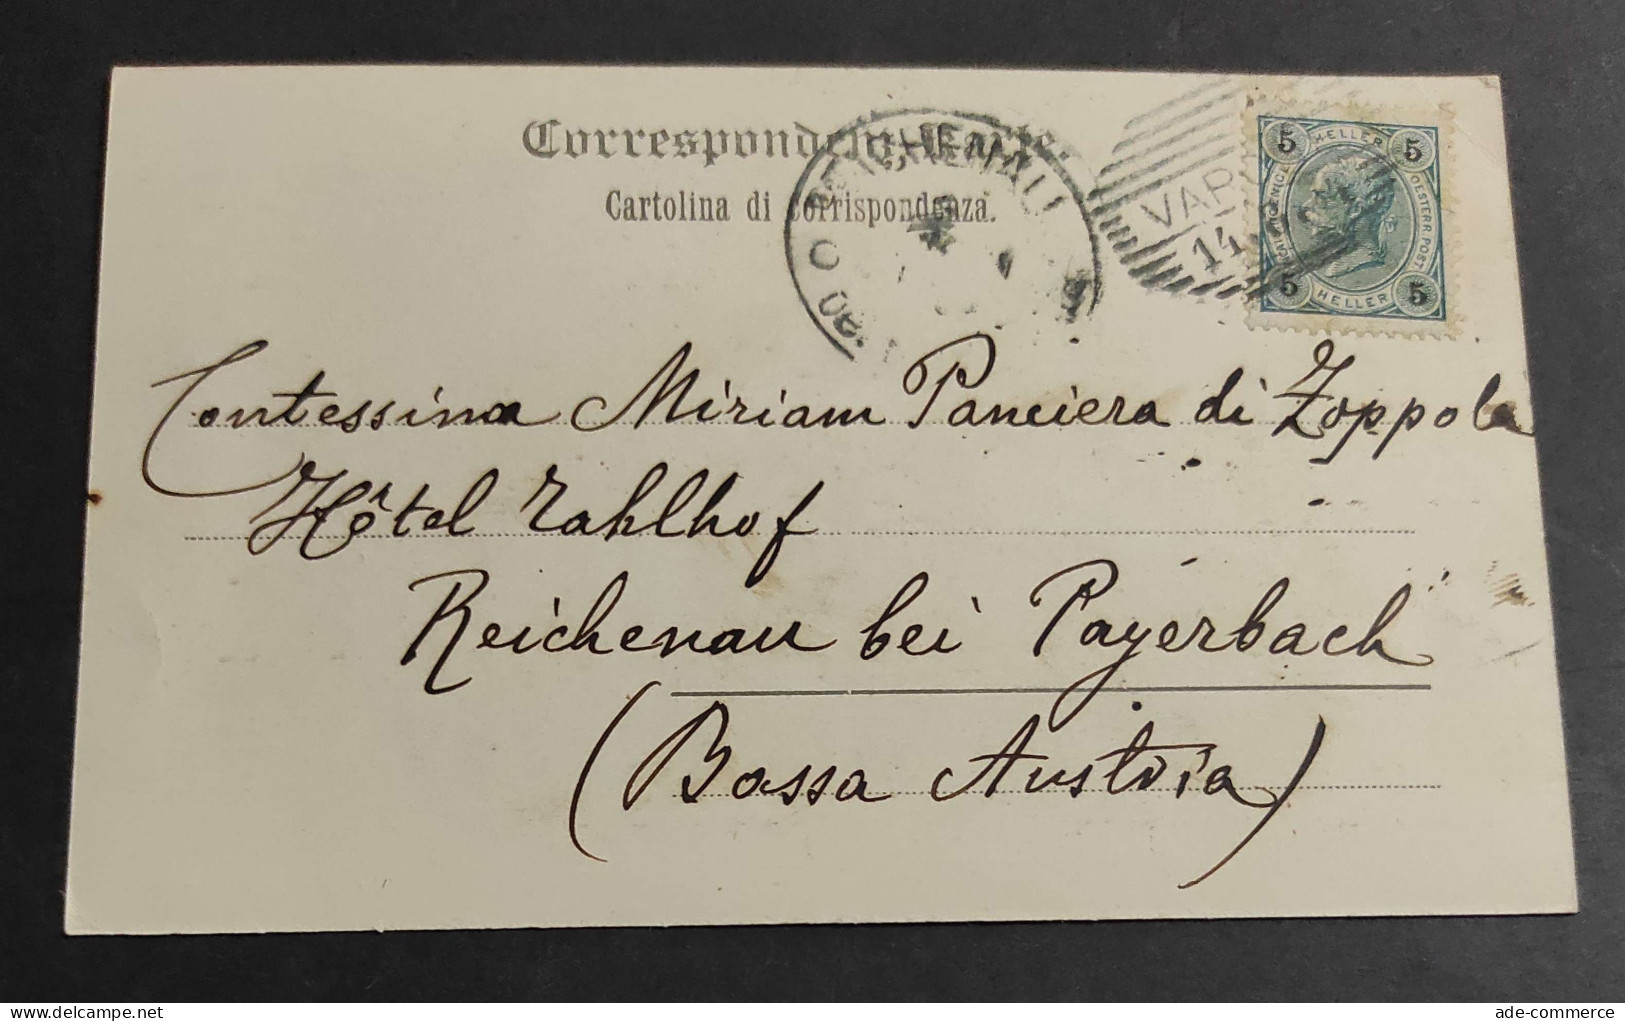 Correspondenz-Karte.
Cartolina di corrispondenza.
REICHENAU
VAR
14
5 HELLER 5
OESTERR. POST
5 HELLER 5
Contessina Miriam Panciera di Zoppola
Hôtel Zahlhof
Reichenau bei Payerbach
(Bassa Austria)
ade-commerce